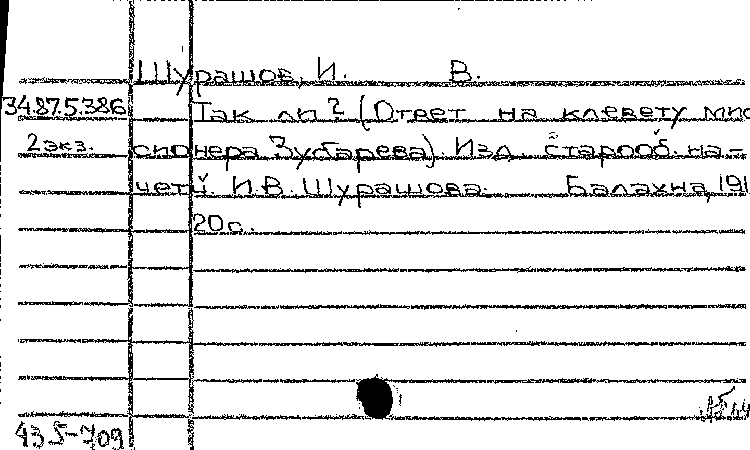 Шурашов, И. В.
34875.386 Так ли? (Ответ на клевету мис
2 экз. сионера Зубарева). Изд. старооб. на-
четч. И.В. Шурашова. Балахна, 191
20 с.
435-709